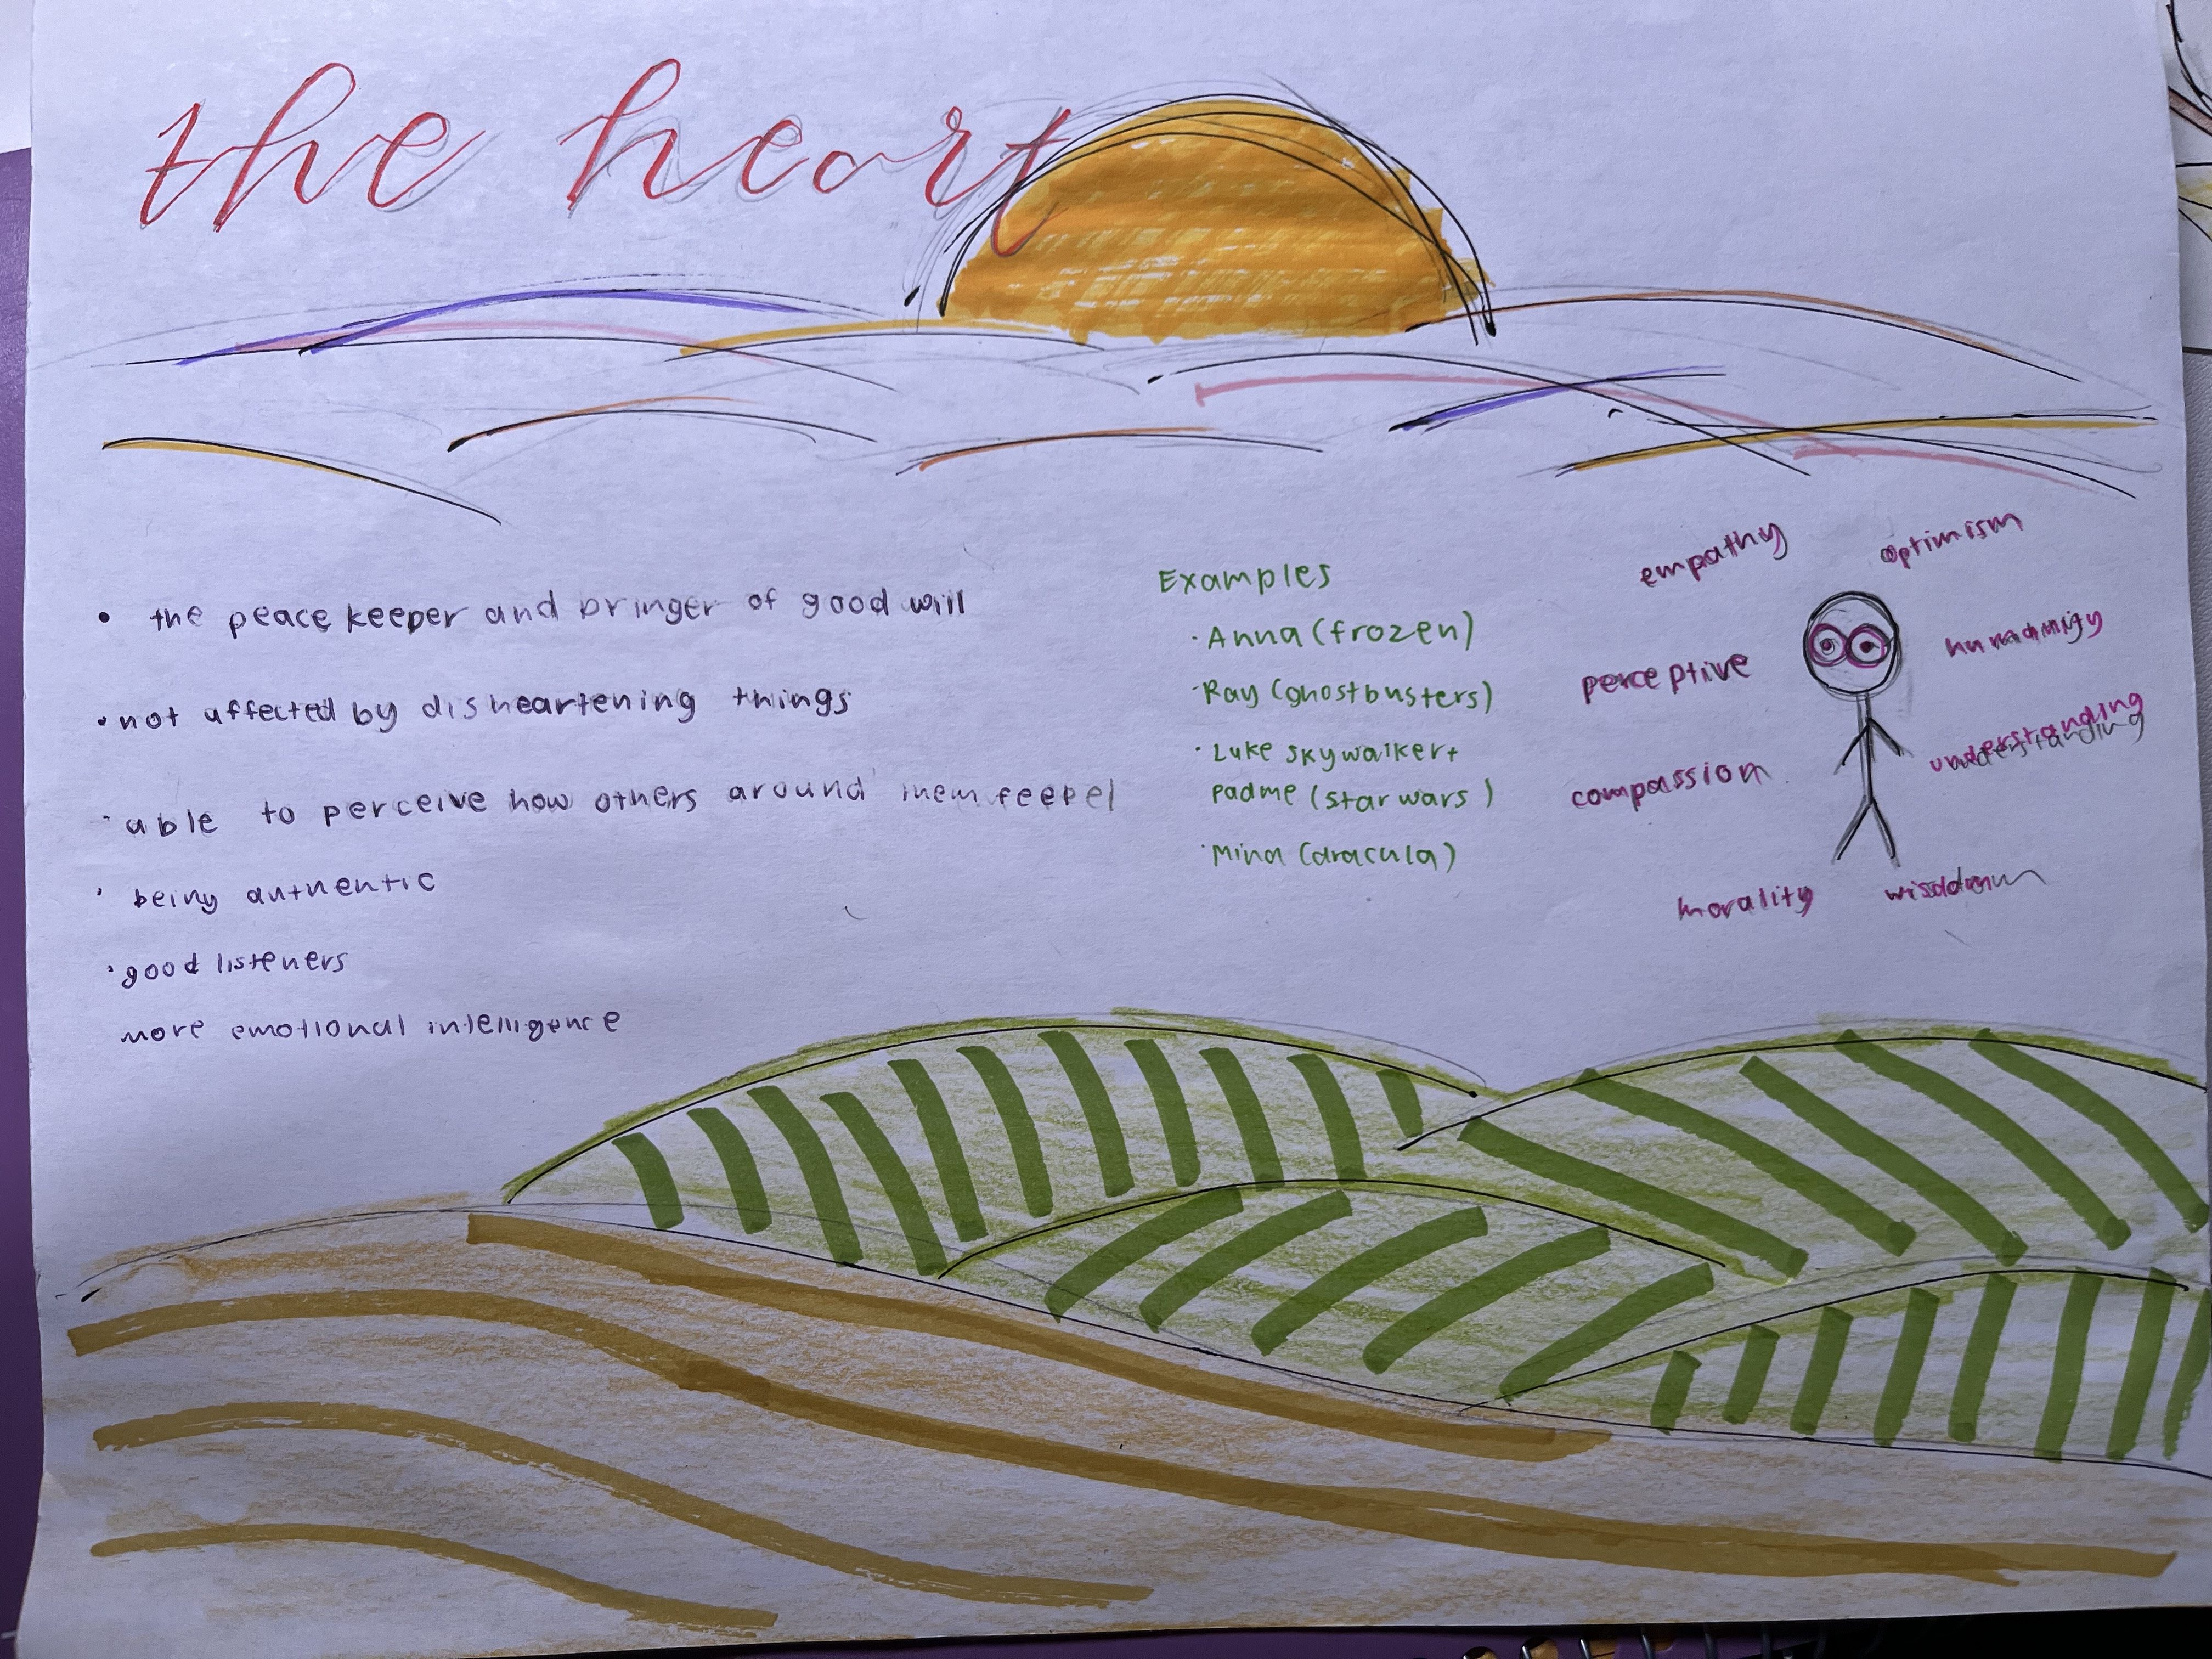 the heart
• the peace keeper and bringer of good will
• not affected by disheartening things
• able to perceive how others around them
• being authentic
• good listeners
more emotional intelligence
Examples
• Anna (frozen)
• Ray (Ghostbusters)
• Luke skywalker +
padme (star wars)
• Mina (dracula)
empathy
optimism
perceptive
understanding
compassion
morality
wisdom